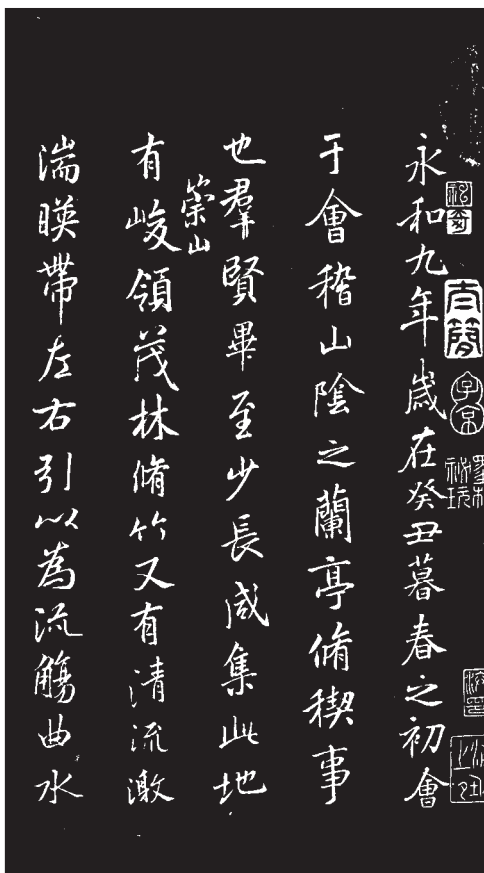 永和九年歲在癸丑暮春之初會
于會稽山陰之蘭亭脩稧事
也羣賢畢至少長咸集此地
崇山
有峻領茂林脩竹又有清流激
湍暎帶左右引以為流觴曲水